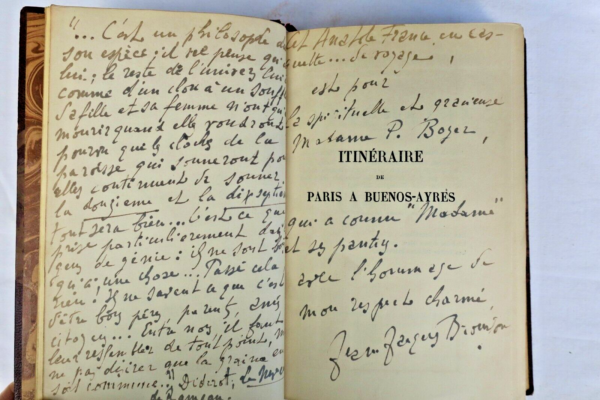 "... C'est un philosophe de
son espèce ; il ne pense qu'à
lui ; le reste de l'univers lui
comme d'un clou à un souff
Sa fille et sa femme n'ont qu'
mourir quand elles voudront
pourvu que les cloches de la
paroisse qui sonneront pour
elles continuent de sonner
la douzième et la dix septième
tout sera bien... C'est ce que
prise particulièrement dans
gens de génie : ils ne sont
qu'à une chose... Passé cela
rien ! Ils ne savent ce que c'est
d'être bon père, parent, amis
citoyen... Entre nous, il faut
leur ressembler de tout point,
ne pas désirer que la graine en
soit commune." Diderot, Le Neveu
de Rameau.
Cet Anatole France en cas-
quette... de voyage,
est pour
la spirituelle et gracieuse
Madame P. Boyer,
ITINÉRAIRE
DE
PARIS A BUENOS-AYRES
qui a connu "Madame"
et ses
avec l'hommage de
mon respect charmé,
Jean-Jacques Brousson